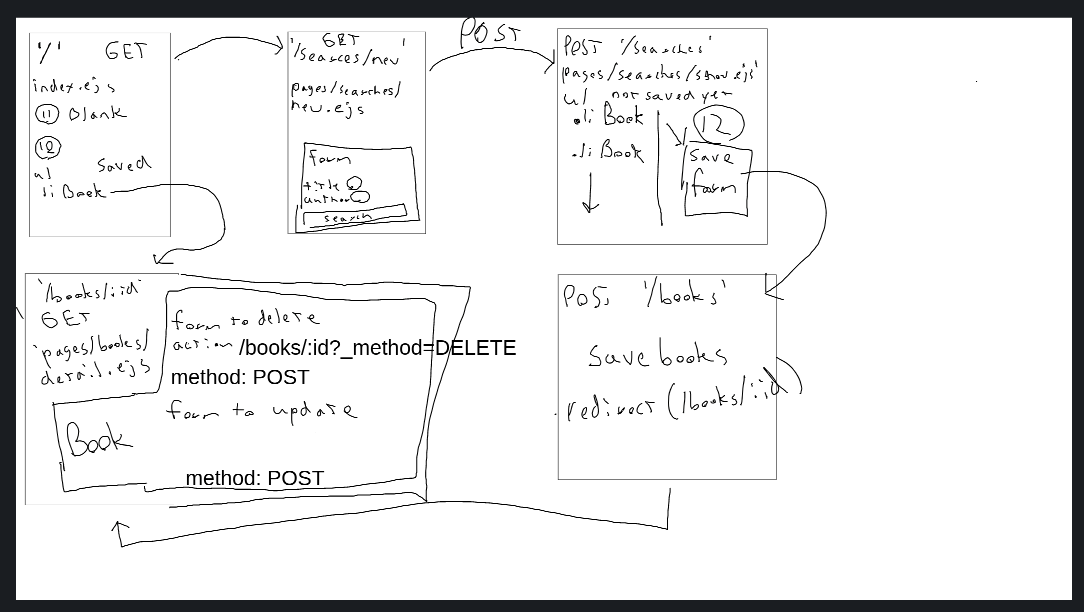 '/' GET
index.ejs
11 blank
12
ul saved
li Book
GET
'/searces/new'
pages/searches/
new.ejs
form
title
author
search
POST
POST '/searches'
pages/searches/show.ejs'
ul not saved yer
li Book
li Book
12
save
form
'/books/:id'
GET
'pages/books/
detail.ejs
Book
form to delete
action /books/:id?_method=DELETE
method: POST
form to update
method: POST
POST '/books'
Save books
redirect (/books/:id)